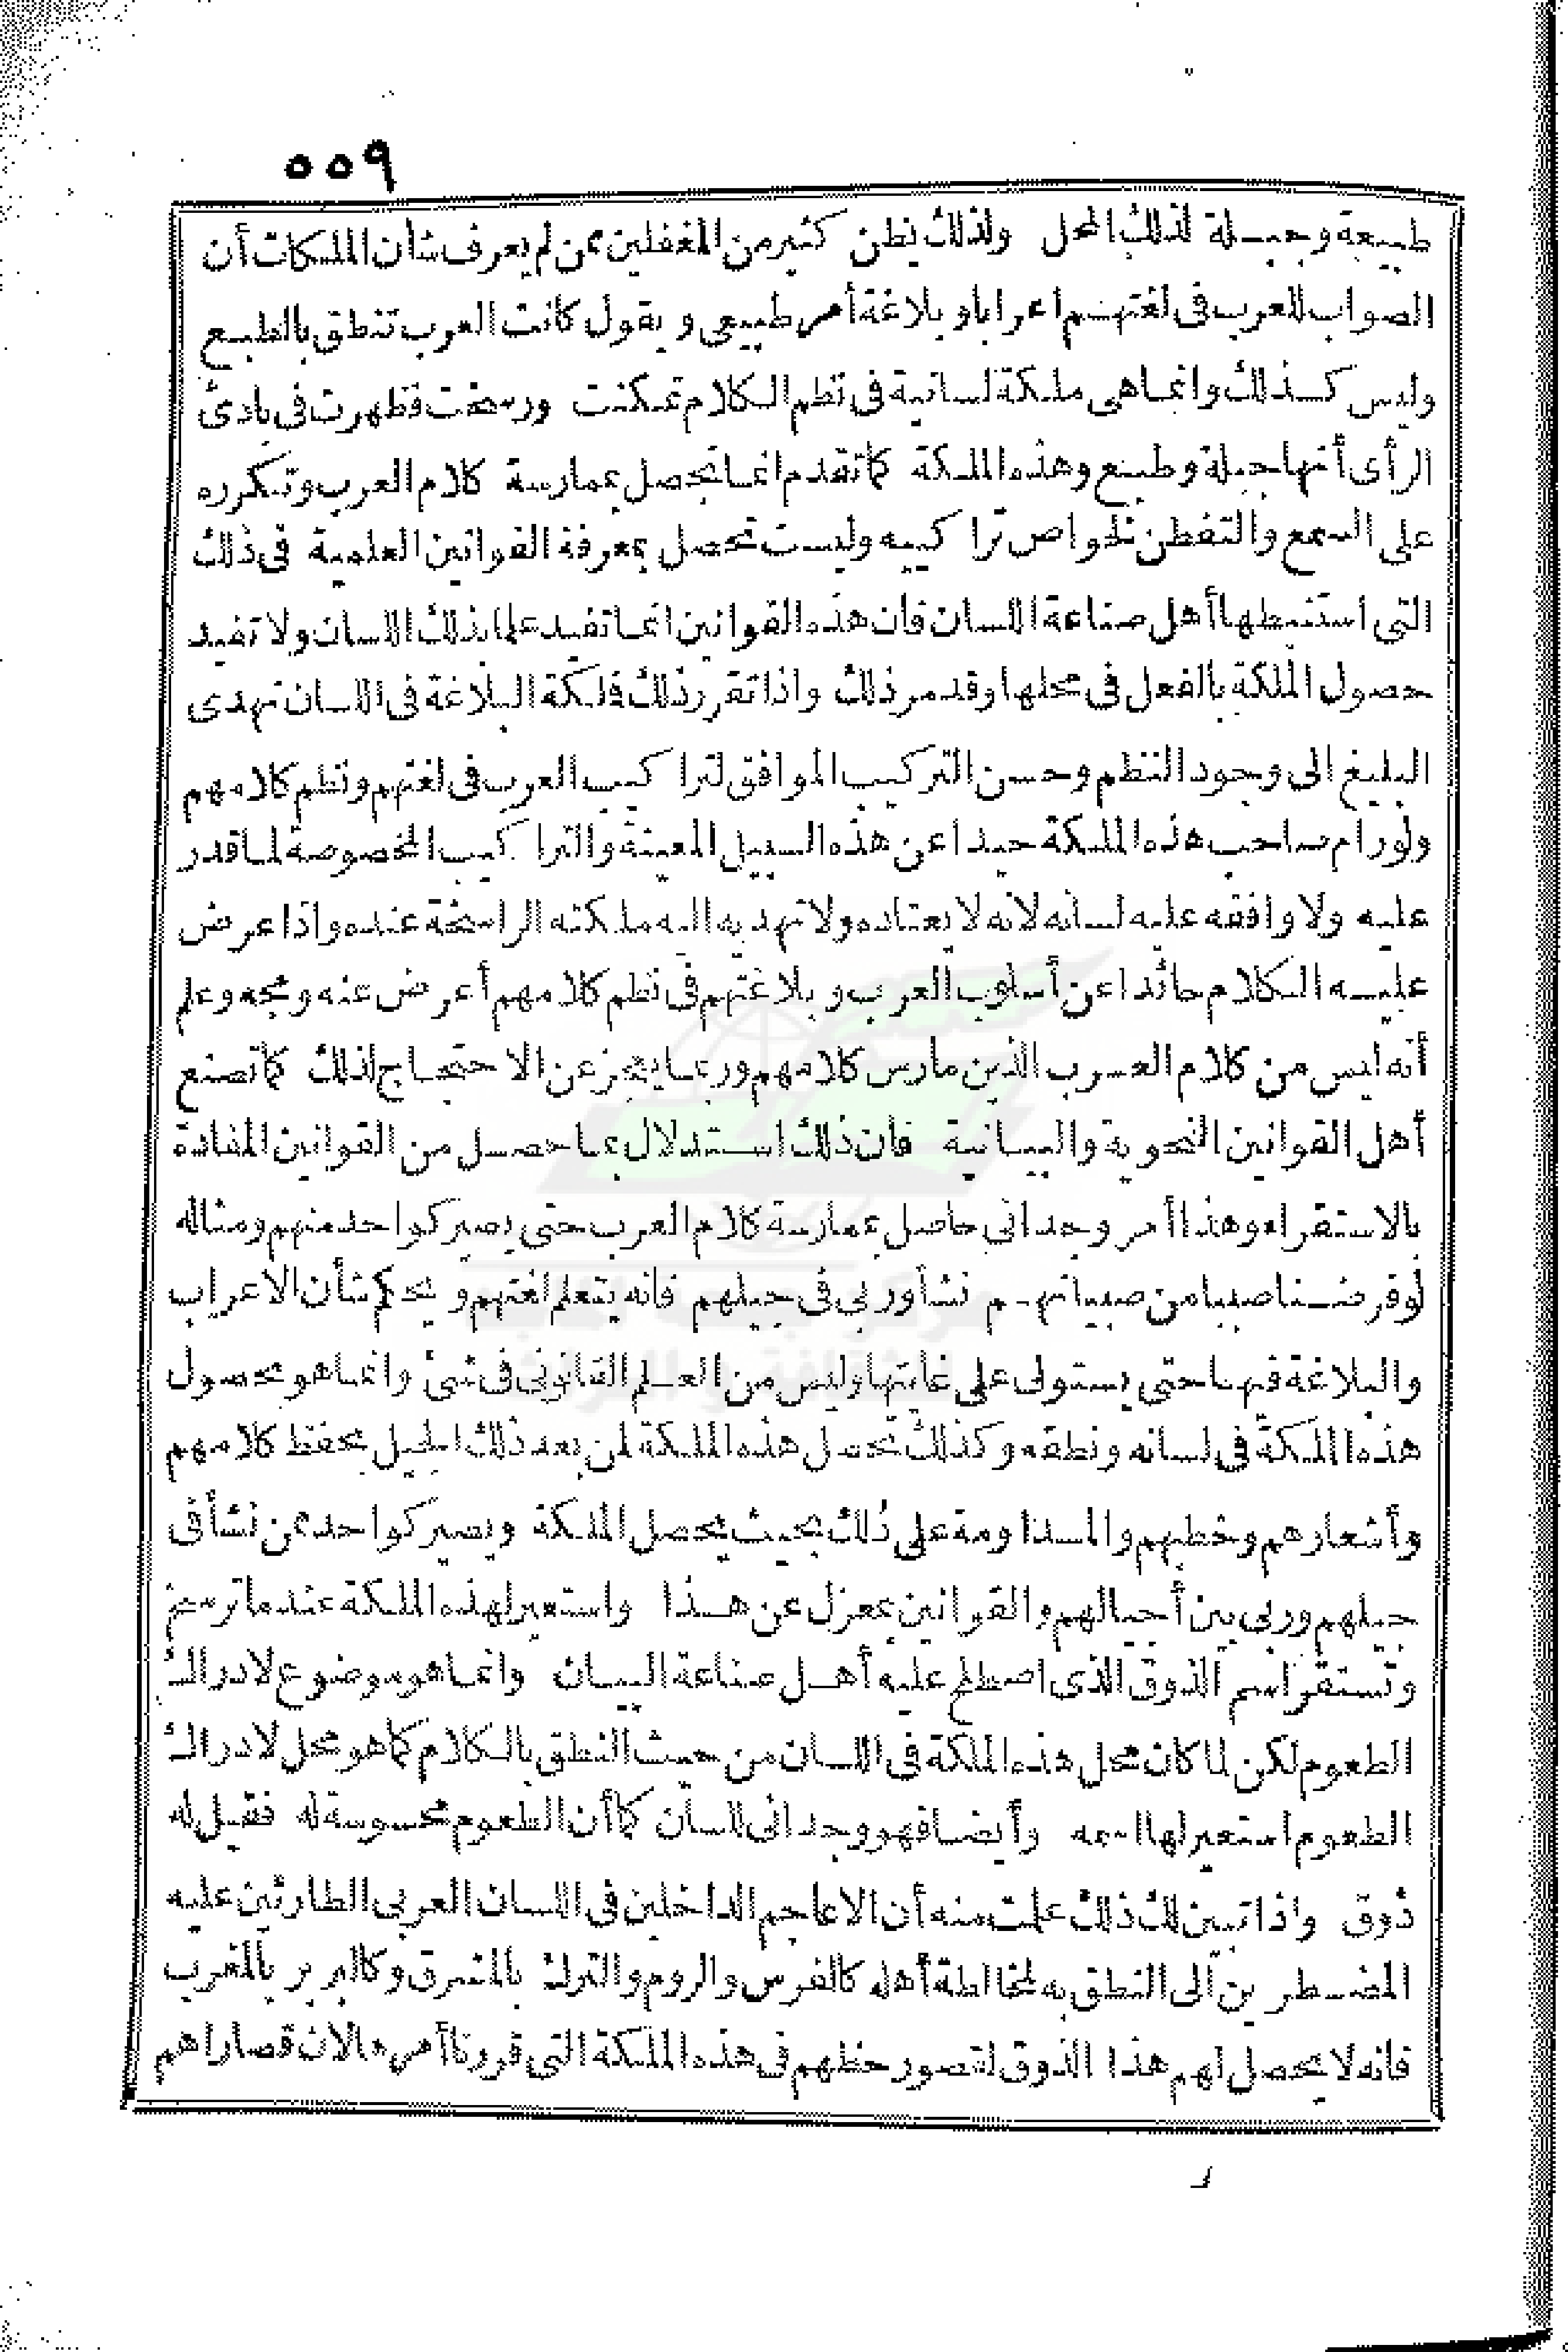 ٥٥٩
طبيعة وجبلة لذلك المحل ولذلك يظن كثير من المغفلين ممن لم يعرف شأن الملكات أن
الصواب للعرب فى لغتهم اعرابا وبلاغة أمر طبيعى ويقول كانت العرب تنطق بالطبع
وليس كذلك وانما هى ملكة لسانية فى نظم الكلام تمكنت ورسخت فظهرت فى بادئ
الرأى أنها جبلة وطبع وهذه الملكة كما تقدم انما تحصل بممارسة كلام العرب وتكرره
على السمع والتفطن لخواص تراكيبه وليست تحصل بمعرفة القوانين العلمية فى ذلك
التى استنبطها أهل صناعة اللسان فان هذه القوانين انما تفيد علما بذلك اللسان ولا تفيد
حصول الملكة بالفعل فى محلها وقد مر ذلك واذا تقرر ذلك فملكة البلاغة فى اللسان تهدى
البليغ الى وجود النظم وحسن التركيب الموافق لتراكيب العرب فى لغتهم ونظم كلامهم
ولو رام صاحب هذه الملكة حيدا عن هذه السبيل المعينة والتراكيب المخصوصة لما قدر
عليه ولا وافقه عليه لسانه لانه لا يعتاده ولا تهديه اليه ملكته الراسخة عنده واذا عرض
عليه الكلام حائدا عن أسلوب العرب وبلاغتهم فى نظم كلامهم أعرض عنه ومجه وعلم
أنه ليس من كلام العرب الذين مارس كلامهم وربما يعجز عن الاحتجاج لذلك كما تصنع
أهل القوانين النحوية والبيانية فان ذلك استدلال بما حصل من القوانين المفادة
بالاستقراء وهذا أمر وجدانى حاصل بممارسة كلام العرب حتى يصير كواحد منهم ومثاله
لو فرضنا صبيا من صبيانهم نشأ وربى فى جيلهم فانه يتعلم لغتهم ويحكم شأن الاعراب
والبلاغة فيها حتى يستولى على غايتها وليس من العلم القانونى فى شئ وانما هو بحصول
هذه الملكة فى لسانه ونطقه وكذلك تحصل هذه الملكة لمن بعد ذلك الجيل بحفظ كلامهم
وأشعارهم وخطبهم والمداومة على ذلك بحيث يحصل الملكة ويصير كواحد ممن نشأ فى
جيلهم وربى بين أجيالهم والقوانين بمعزل عن هذا واستعير لهذه الملكة عند ما ترسخ
وتستقر اسم الذوق الذى اصطلح عليه أهل صناعة البيان وانما هو موضوع لادراك
الطعوم لكن لما كان محل هذه الملكة فى اللسان من حيث النطق بالكلام كما هو محل لادراك
الطعوم استعير لها اسمه وأيضا فهو وجدانى للسان كما أن الطعوم محسوسة له فقيل له
ذوق واذا تبين لك ذلك علمت منه أن الاعاجم الداخلين فى اللسان العربى الطارئين عليه
المضطرين الى النطق به لمخالطة أهله كالفرس والروم والترك بالمشرق وكالبربر بالمغرب
فانه لا يحصل لهم هذا الذوق لقصور حظهم فى هذه الملكة التى قررنا أمرها لان قصاراهم